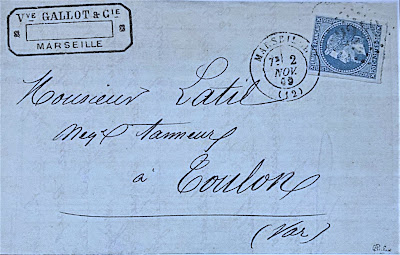 Vve GALLOT & CIE
MARSEILLE
MARSEILLE
2
NOV.
69
(12)
Monsieur Latil
Negt tanneur
à Toulon
(Var)